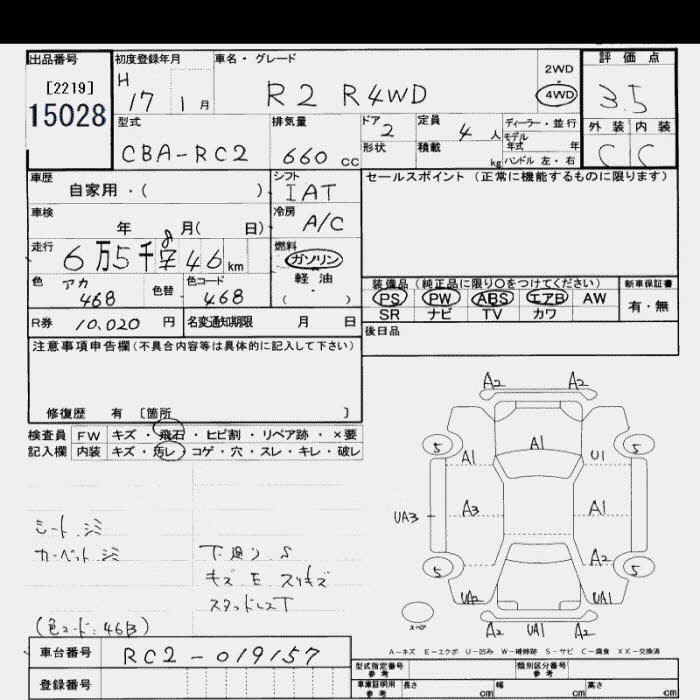 出品番号 初度登録年月 車名・グレード 評価点
[2219] H 2WD
15028 17 1月 R2 R4WD 4WD 3.5
型式 排気量 ドア 2 定員 4人 ディーラー・並行 外装 内装
モデル年式 年
CBA-RC2 660cc 形状 積載 kg ハンドル 左・右 C C
車歴 シフト セールスポイント(正常に機能するものに限ります)
自家用・( ) IAT
車検 冷房
年 月( 日) A/C
走行 燃料
6万5千846km ガソリン
色 アカ 色替 色コード 軽油
468 468 ( ・ )
装備品(純正品に限り○をつけてください) 新車保証書
PS PW ABS エアB AW 有・無
SR ナビ TV カワ
R券 10,020円 名変通知期限 月 日 後日品
注意事項申告欄(不具合内容等は具体的に記入して下さい)
修復歴 有 〔箇所 〕
検査員 FW キズ・飛石・ヒビ割・リペア跡・×要
記入欄 内装 キズ・汚レ・コゲ・穴・スレ・キレ・破レ
A2 A2
A1
5 A1 U1 5
UA3 A3 A1
A2
5 5
UA2 UA1
スペア A2 UA1 A2
シート シミ
カーペット シミ
下廻り S
キズ E スリキズ
スタッドレスT
(色コード:46B)
A-キズ E-エクボ U-凹み W-補修跡 S-サビ C-腐食 XX-交換済
車台番号 RC2-019157
登録番号
型式指定番号 参考 類別区分番号 参考
車庫証明用 参考 長さ cm 幅 cm 高さ cm